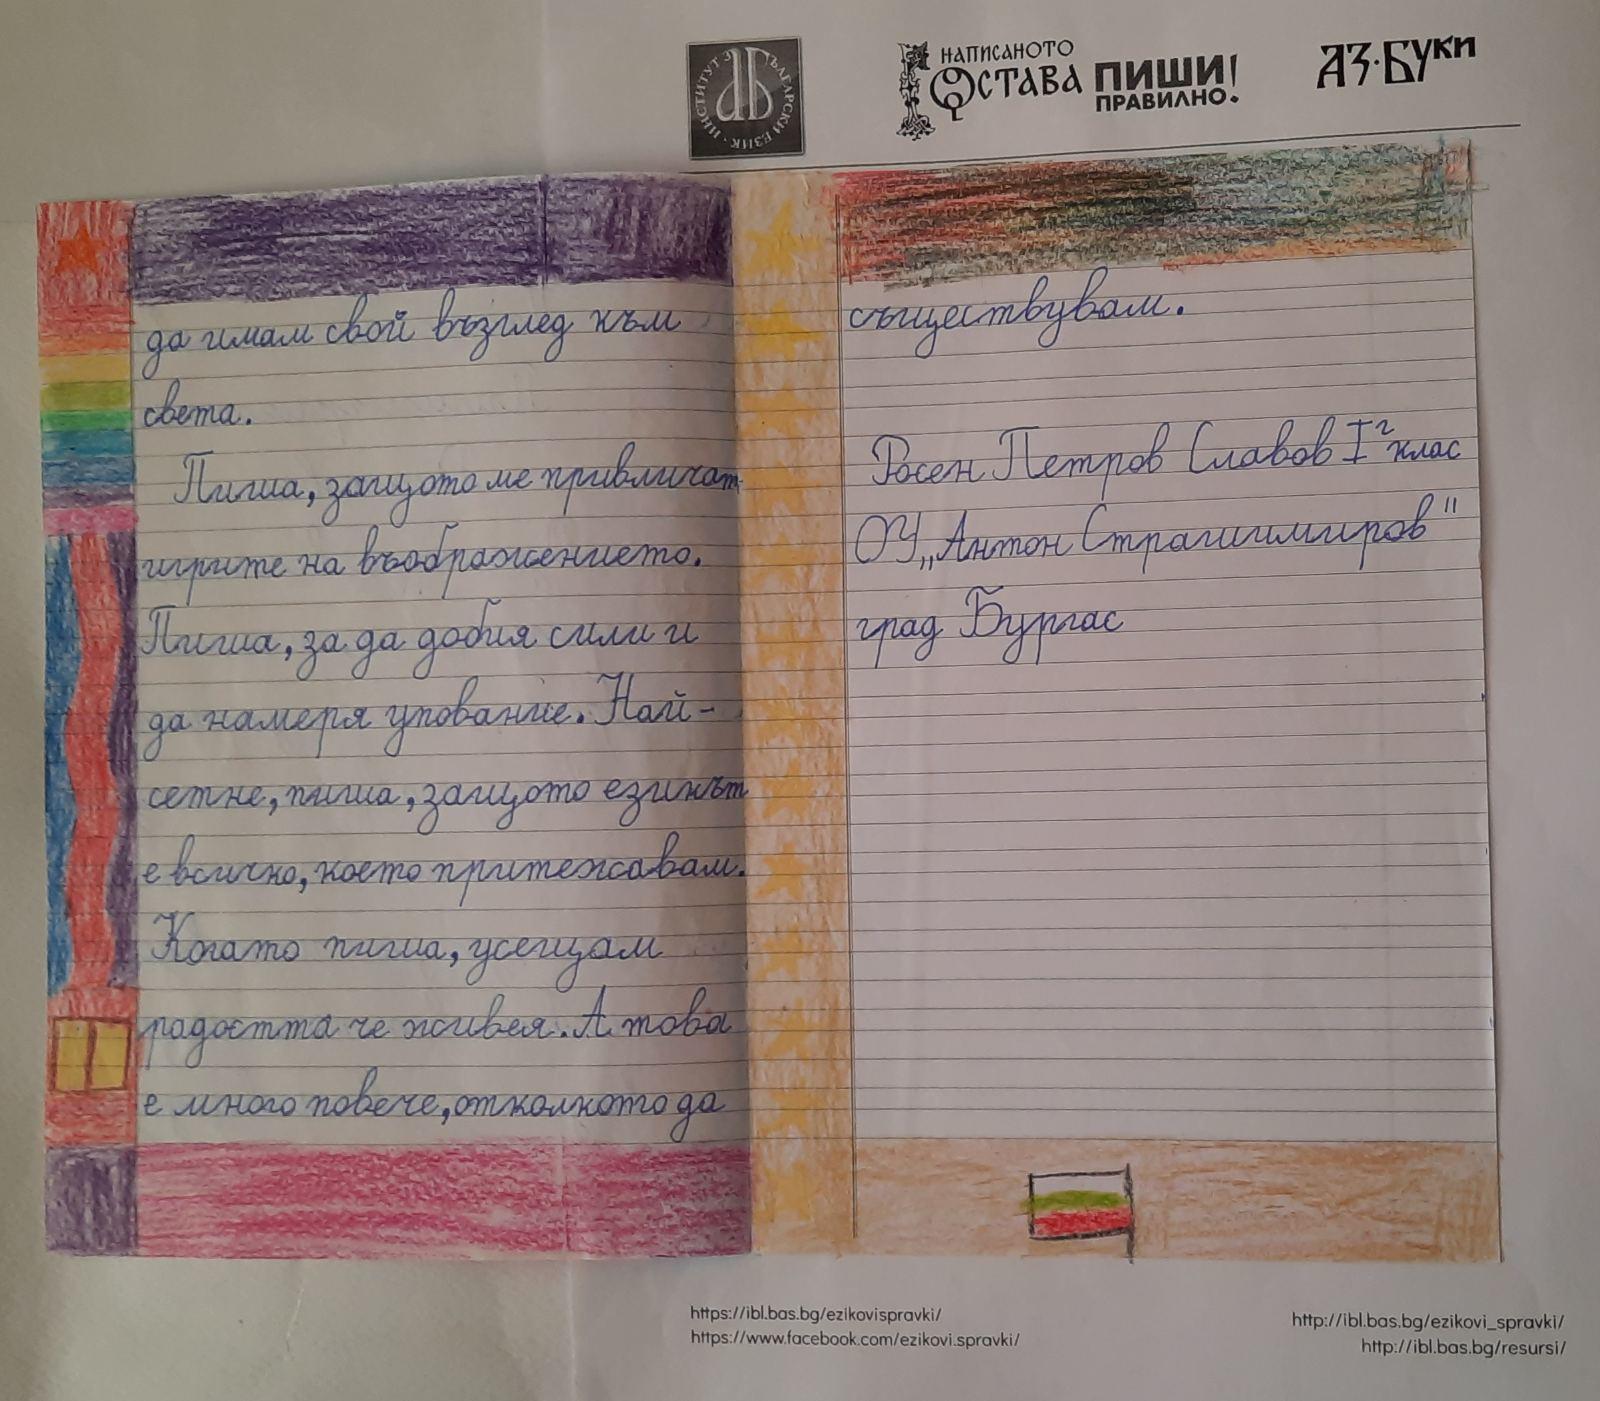 ИНСТИТУТ ЗА БЪЛГАРСКИ ЕЗИК
НАПИСАНОТО
ОСТАВА
ПИШИ
ПРАВИЛНО!
АЗ·БУКИ
да имам свой възглед към
света.
Пиша, защото ме привличат
игрите на въображението.
Пиша, за да добия сили и
да намеря упование. Най-
сетне, пиша, защото езикът
е всичко, което притежавам.
Когато пиша, усещам
радостта че живея. А това
е много повече, отколкото да
съществувам.
Росен Петров Славов I г клас
ОУ „Антон Страшимиров"
град Бургас
https://ibl.bas.bg/ezikovispravki/
https://www.facebook.com/ezikovi.spravki/
http://ibl.bas.bg/ezikovi_spravki/
http://ibl.bas.bg/resursi/